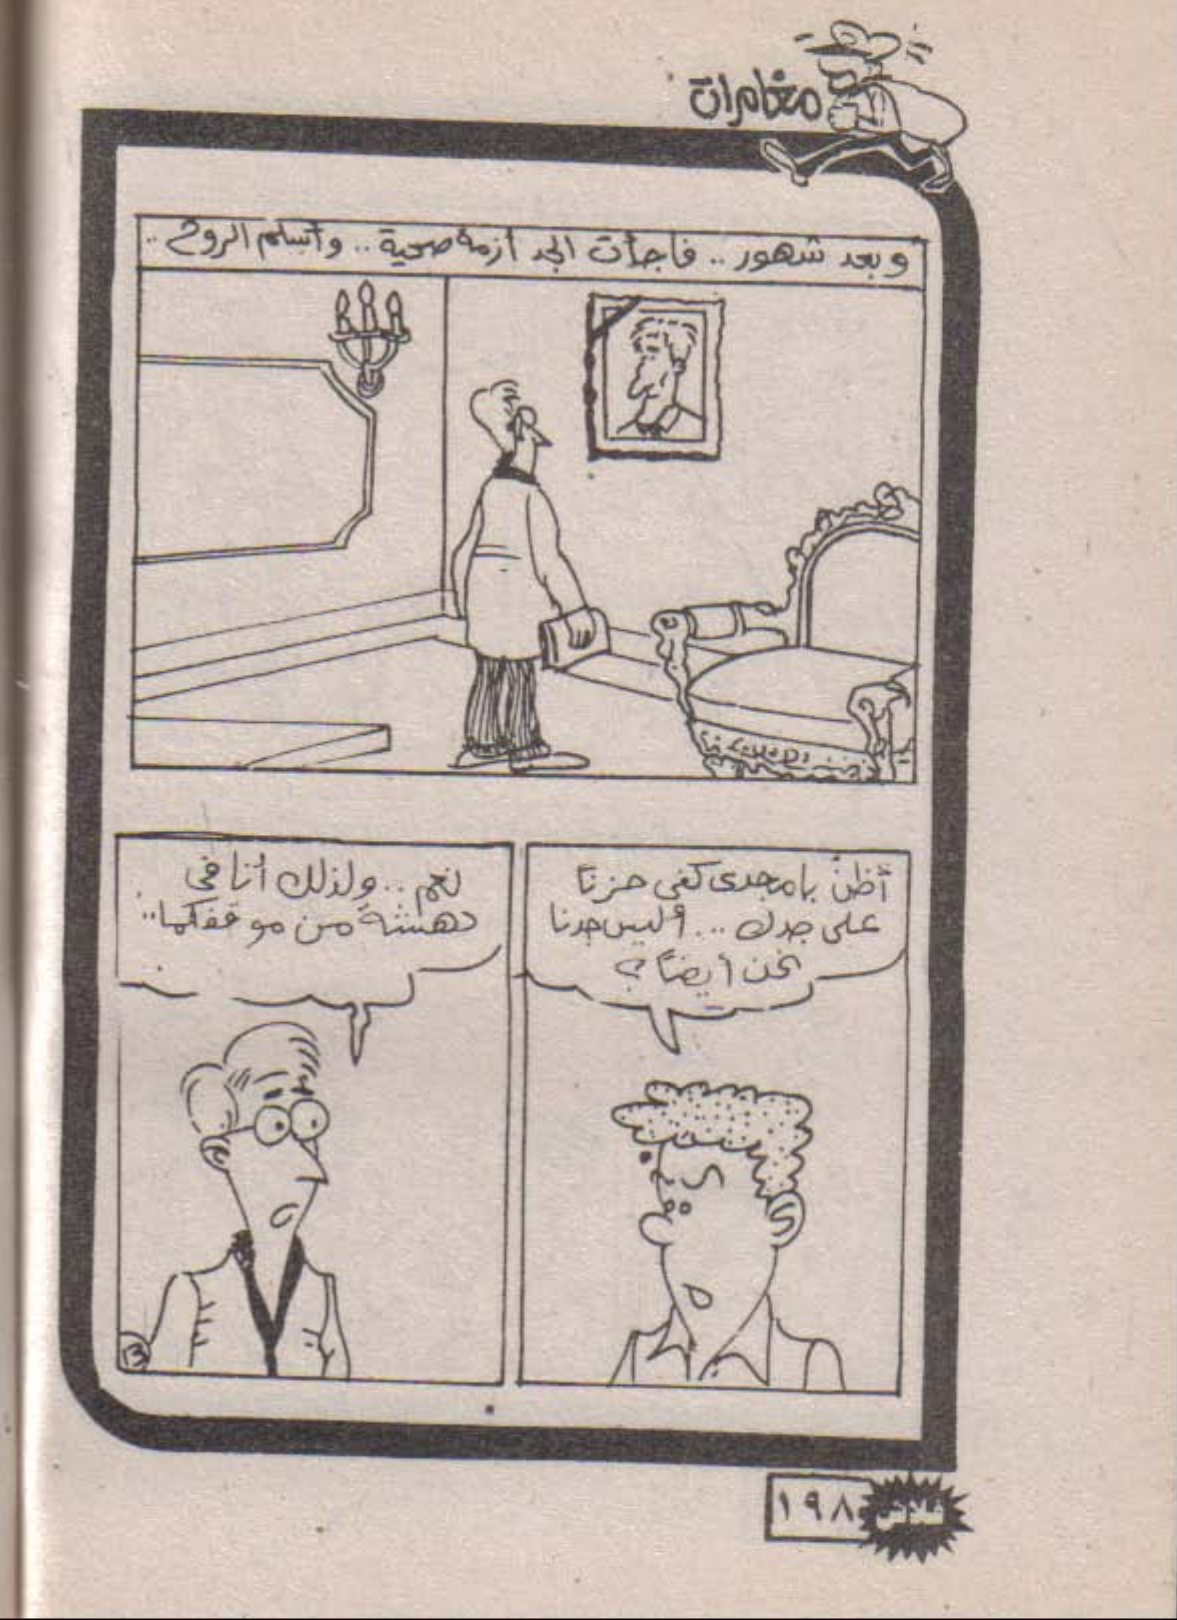 مغامرات
وبعد شهور .. فاجأت الجد أزمة صحية .. وأسلم الروح ..
أظن يا مجدى كفى حزناً
على جدك ... أليس جدنا
نحن أيضاً ؟
نعم .. ولذلك أنا فى
دهشة من موقفكما ..
١٩٨
فلاش